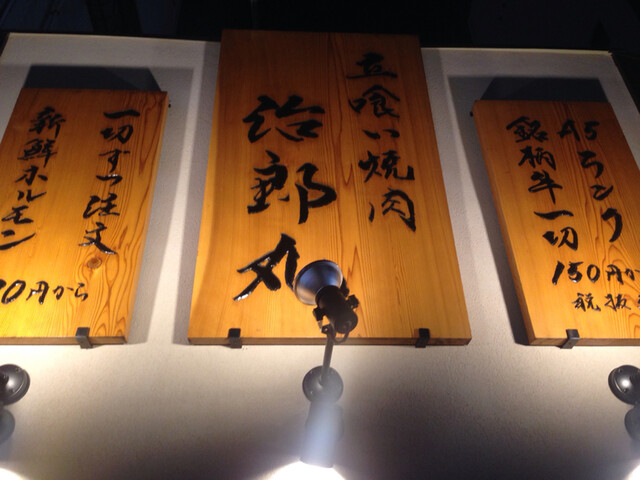 A5ランク
銘柄牛一切
150円か
税抜
立喰い焼肉
治郎丸
一切ずつ注文
新鮮ホルモン
0円から